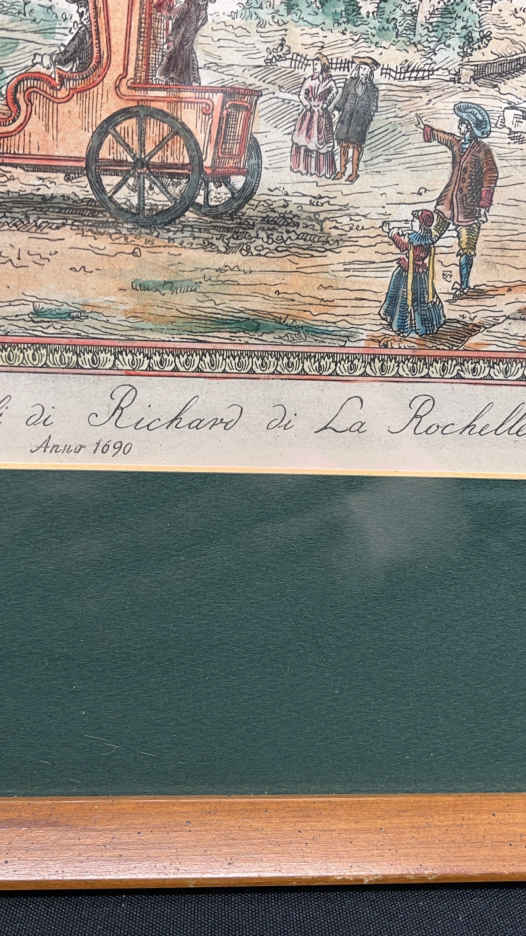 di Richard di La Rochelle
Anno 1690